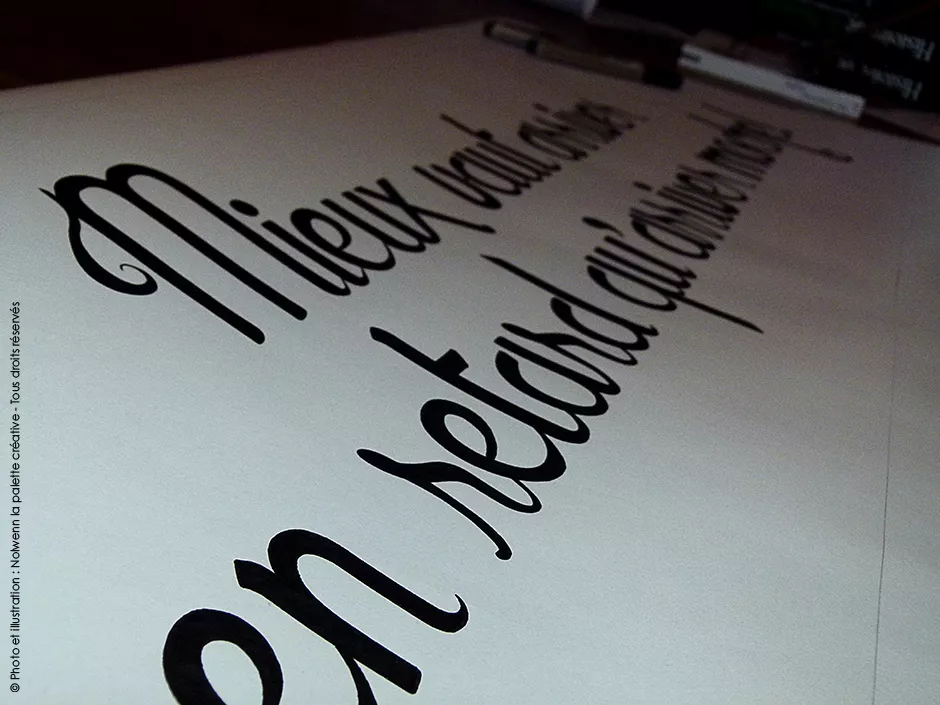 Mieux vaut arriver
en retard qu'arriver moche!
© Photo et illustration : Nolwenn la palette créative - Tous droits réservés